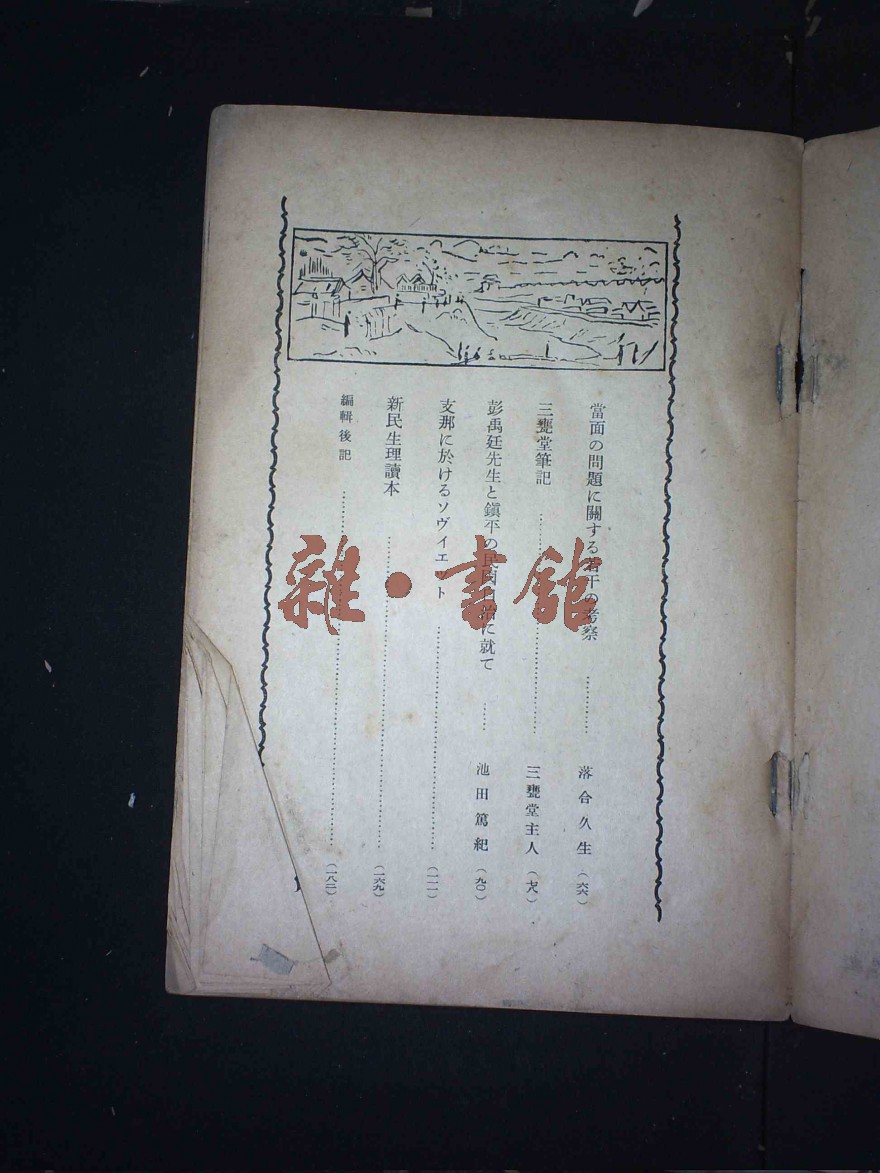 當面の問題に關する若干の考察 ………… 落合久生 (六六)
三甕堂筆記 ………… 三甕堂主人 (七八)
彭禹廷先生と鎭平の民團自治に就て …… 池田篤紀 (九〇)
支那に於けるソヴイエツト ………… (一一一)
新民生理讀本 ………… (一六九)
編輯後記 ………… (一八二)
雜·書館